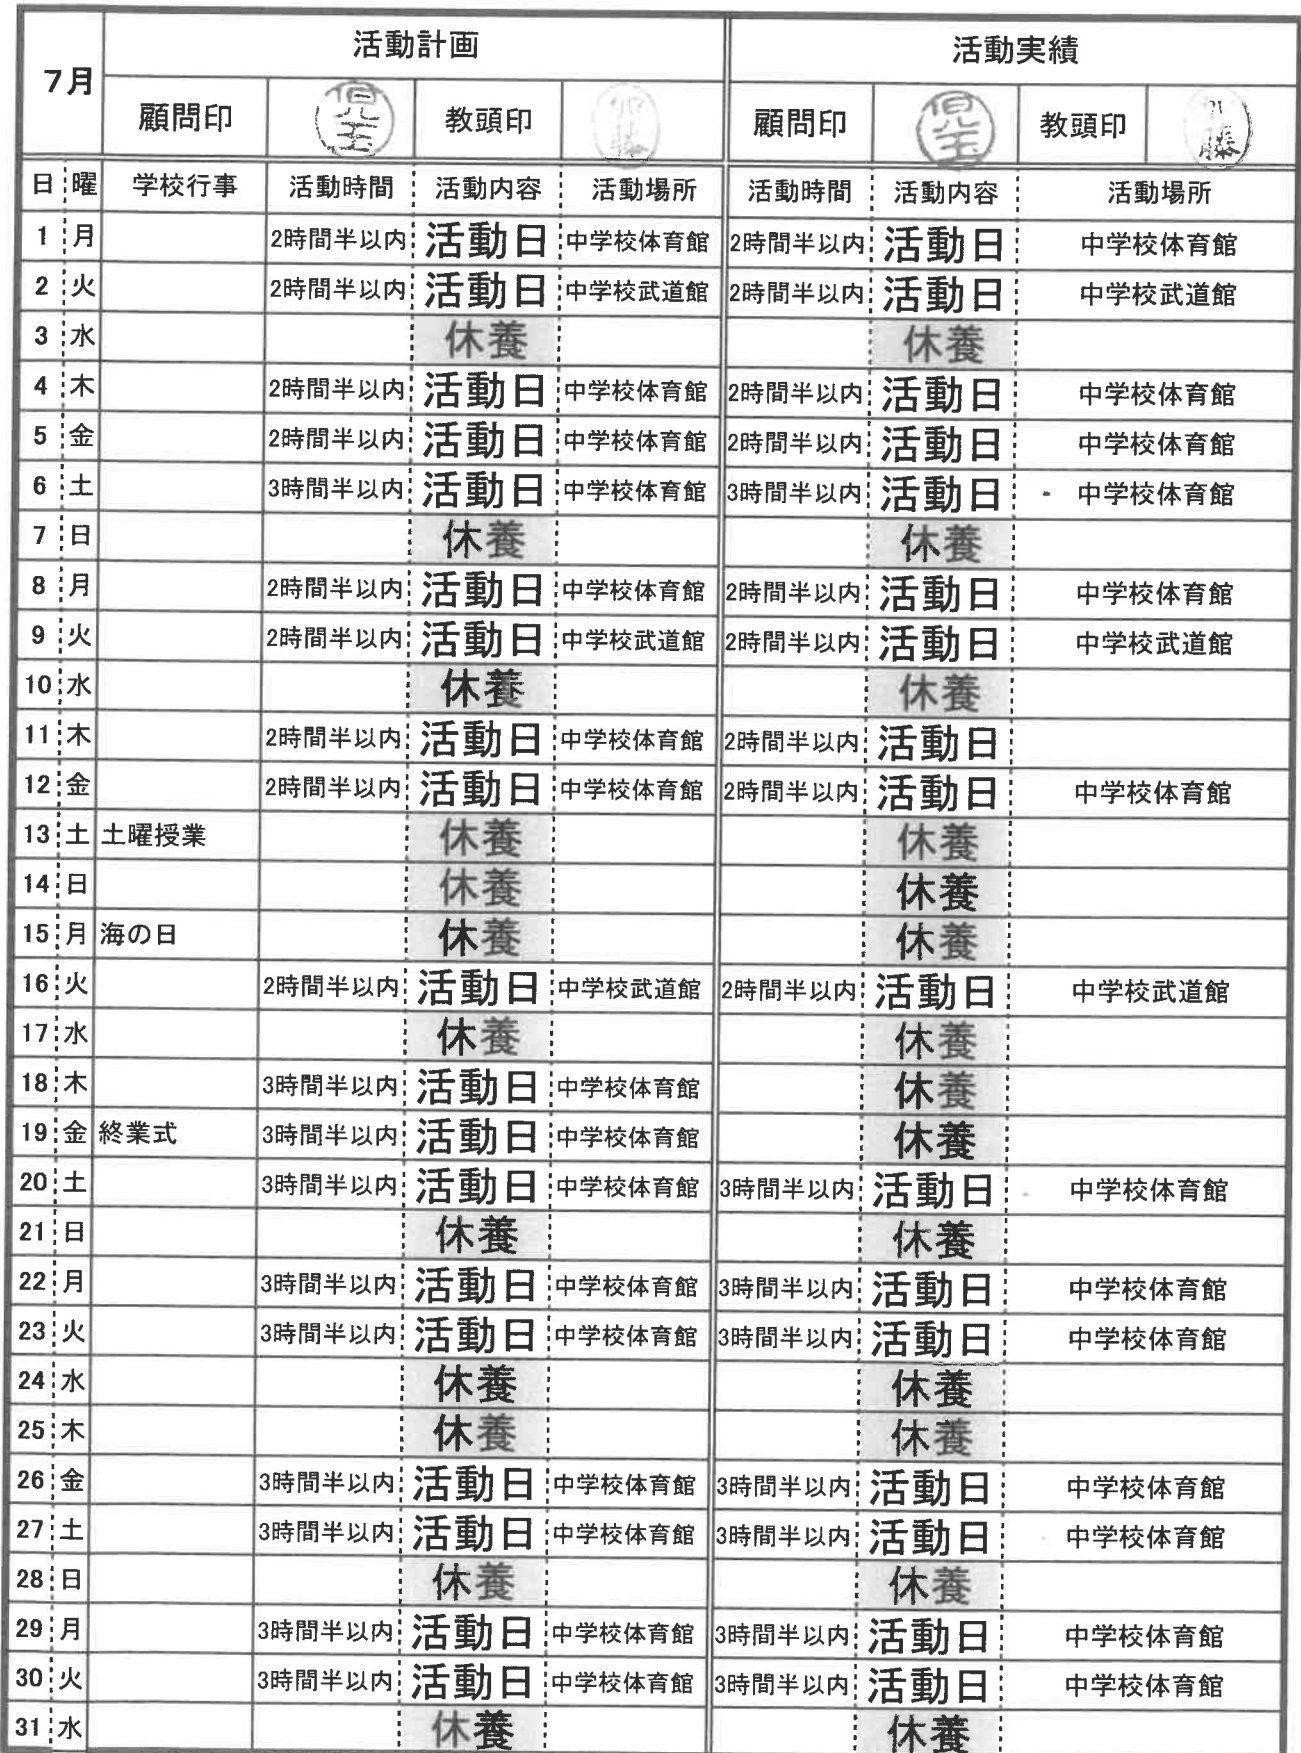 7月 活動計画 活動実績
顧問印 児玉 教頭印 加藤 顧問印 児玉 教頭印 加藤
日 曜 学校行事 活動時間 活動内容 活動場所 活動時間 活動内容 活動場所
1 月 2時間半以内 活動日 中学校体育館 2時間半以内 活動日 中学校体育館
2 火 2時間半以内 活動日 中学校武道館 2時間半以内 活動日 中学校武道館
3 水 休養 休養
4 木 2時間半以内 活動日 中学校体育館 2時間半以内 活動日 中学校体育館
5 金 2時間半以内 活動日 中学校体育館 2時間半以内 活動日 中学校体育館
6 土 3時間半以内 活動日 中学校体育館 3時間半以内 活動日 中学校体育館
7 日 休養 休養
8 月 2時間半以内 活動日 中学校体育館 2時間半以内 活動日 中学校体育館
9 火 2時間半以内 活動日 中学校武道館 2時間半以内 活動日 中学校武道館
10 水 休養 休養
11 木 2時間半以内 活動日 中学校体育館 2時間半以内 活動日
12 金 2時間半以内 活動日 中学校体育館 2時間半以内 活動日 中学校体育館
13 土 土曜授業 休養 休養
14 日 休養 休養
15 月 海の日 休養 休養
16 火 2時間半以内 活動日 中学校武道館 2時間半以内 活動日 中学校武道館
17 水 休養 休養
18 木 3時間半以内 活動日 中学校体育館 休養
19 金 終業式 3時間半以内 活動日 中学校体育館 休養
20 土 3時間半以内 活動日 中学校体育館 3時間半以内 活動日 中学校体育館
21 日 休養 休養
22 月 3時間半以内 活動日 中学校体育館 3時間半以内 活動日 中学校体育館
23 火 3時間半以内 活動日 中学校体育館 3時間半以内 活動日 中学校体育館
24 水 休養 休養
25 木 休養 休養
26 金 3時間半以内 活動日 中学校体育館 3時間半以内 活動日 中学校体育館
27 土 3時間半以内 活動日 中学校体育館 3時間半以内 活動日 中学校体育館
28 日 休養 休養
29 月 3時間半以内 活動日 中学校体育館 3時間半以内 活動日 中学校体育館
30 火 3時間半以内 活動日 中学校体育館 3時間半以内 活動日 中学校体育館
31 水 休養 休養